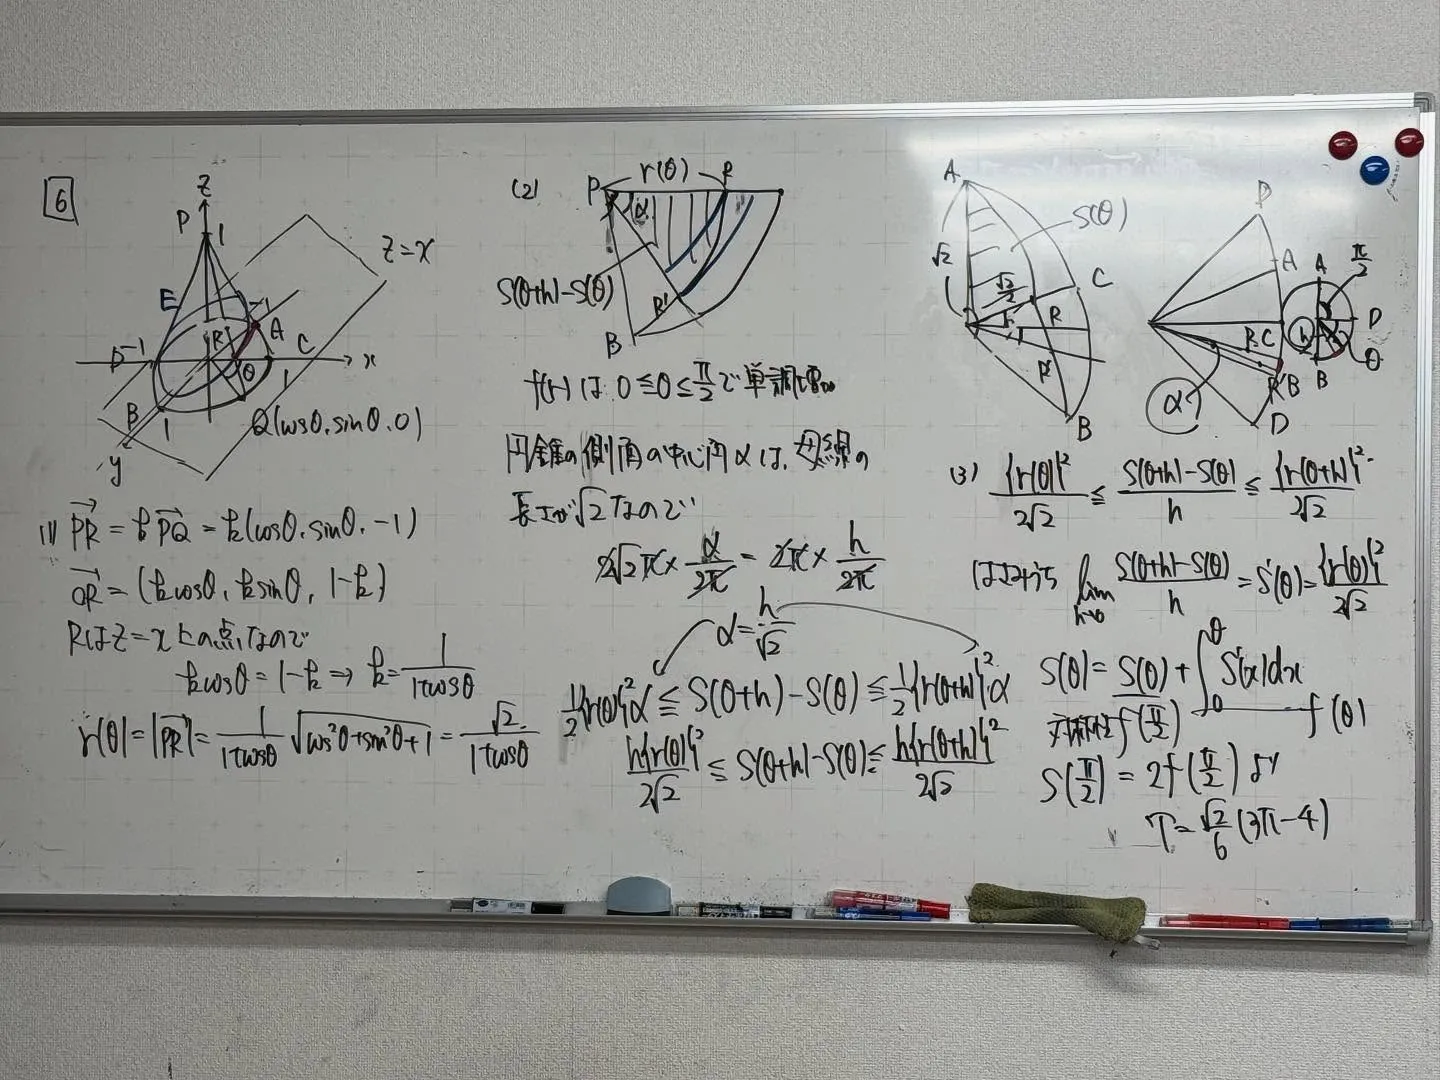 6
z
P
1
z=x
E
-1
A
R
C
D
-1
x
θ
1
B
1
Q(cosθ, sinθ, 0)
y
(1) PR = kPQ = k(cosθ, sinθ, -1)
OR = (kcosθ, ksinθ, 1-k)
Rはz=x上の点なので
kcosθ = 1-k ⇒ k = 1/(1+cosθ)
r(θ) = |PR| = 1/(1+cosθ) √(cos²θ+sin²θ+1) = √2/(1+cosθ)
(2)
P
r(θ)
R
α
S(θ+h)-S(θ)
R'
B
f(r)は 0≦θ≦π/2で単調増加
円錐の側面の中心角αは、母線の
長さが√2なので
2√2π × α/2π = 2π × h/2π
α = h/√2
1/2{r(θ)}²α ≦ S(θ+h)-S(θ) ≦ 1/2{r(θ+h)}²·α
h{r(θ)}²/2√2 ≦ S(θ+h)-S(θ) ≦ h{r(θ+h)}²/2√2
A
S(θ)
√2
√2/2
C
R
R'
B
D
A
A
π/2
R
C
h
D
θ
R'
B
B
α
D
(3) {r(θ)}²/2√2 ≦ (S(θ+h)-S(θ))/h ≦ {r(θ+h)}²/2√2
はさみうち lim h→0 (S(θ+h)-S(θ))/h = S'(θ) = {r(θ)}²/2√2
S(θ) = S(0) + ∫₀^θ S'(x)dx
対称性 f(π/2)
f(θ)
S(π/2) = 2f(π/2) より
T = √2/6 (3π-4)